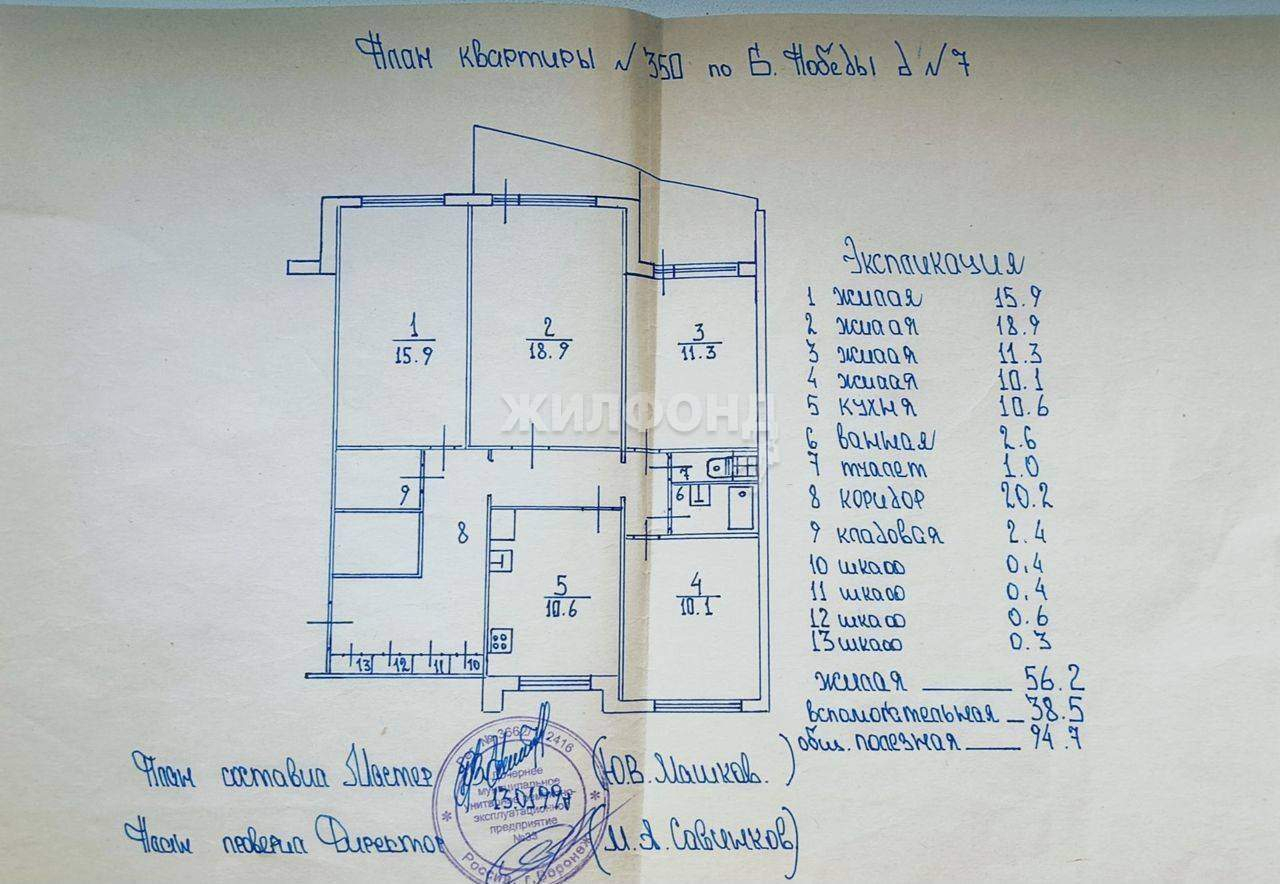 План квартиры N 350 по Б. Победы д N 7
1
15.9
2
18.9
3
11.3
ЖИЛФОНД
9
8
7
6
5
10.6
4
10.1
13 12 11 10
Экспликация
1 жилая 15.9
2 жилая 18.9
3 жилая 11.3
4 жилая 10.1
5 кухня 10.6
6 ванная 2.6
7 туалет 1.0
8 коридор 20.2
9 кладовая 2.4
10 шкаф 0.4
11 шкаф 0.4
12 шкаф 0.6
13 шкаф 0.3
жилая 56.2
вспомогательная 38.5
общ. полезная 94.7
План составил Мастер (Ю.В. Машков.)
План проверил Директор (М.А. Савинков)
2416
муниципальное
эксплуатационное
предприятие
№33
Россия, г. Воронеж
13.01.99г